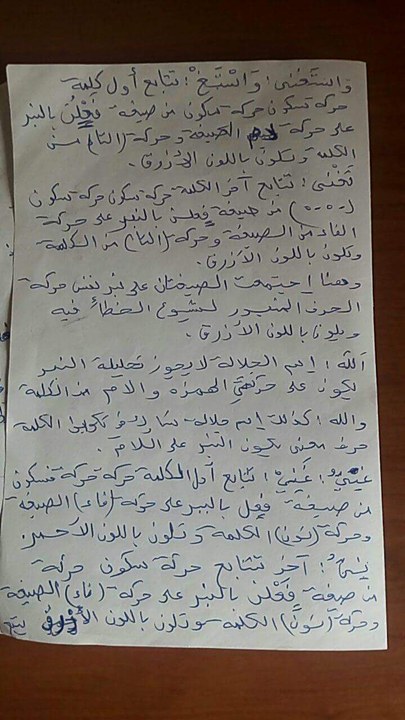 وَاسْتَغْنى : وَاسْتَغْ : تتابع أول كلمة
حركة سكون حركة سكون من صيغة فَعْلُنْ بالنبر
على حركة لام الصيغة وحركة (التاء) من
الكلمة وتكون باللون الأزرق.
تَغْنَى : تتابع آخر الكلمة حركة سكون حركة سكون
من صيغة فعلن بالنبر على حركة
الفاء من الصيغة وحركة (التاء) من الكلمة
وتكون باللون الأزرق.
وهنا اجتمعت الصيغتان على نبر نفس حركة
الحرف المنبور لشيوع الخطأ فيه
ويكون باللون الأزرق.
اَللّه : إسم الجلالة لا يجوز تحليله النبر
يكون على حركتي الهمزة والام من الكلمة
والله : كذلك إسم جلالة الكلمة
حرف معنى يكون النبر على اللام.
غَنِيٌّ : غَنِيْ : تتابع أول الكلمة حركة حركة فسكون
من صيغة فعل بالنبر على حركة (فاء) الصيغة
وحركة (نون) الكلمة وتكون باللون الأحمر.
آخر تتابع حركة سكون حركة
من صيغة فَعْلُنْ بالنبر على حركة (فاء) الصيغة
وحركة (نون) الكلمة وتكون باللون الأزرق